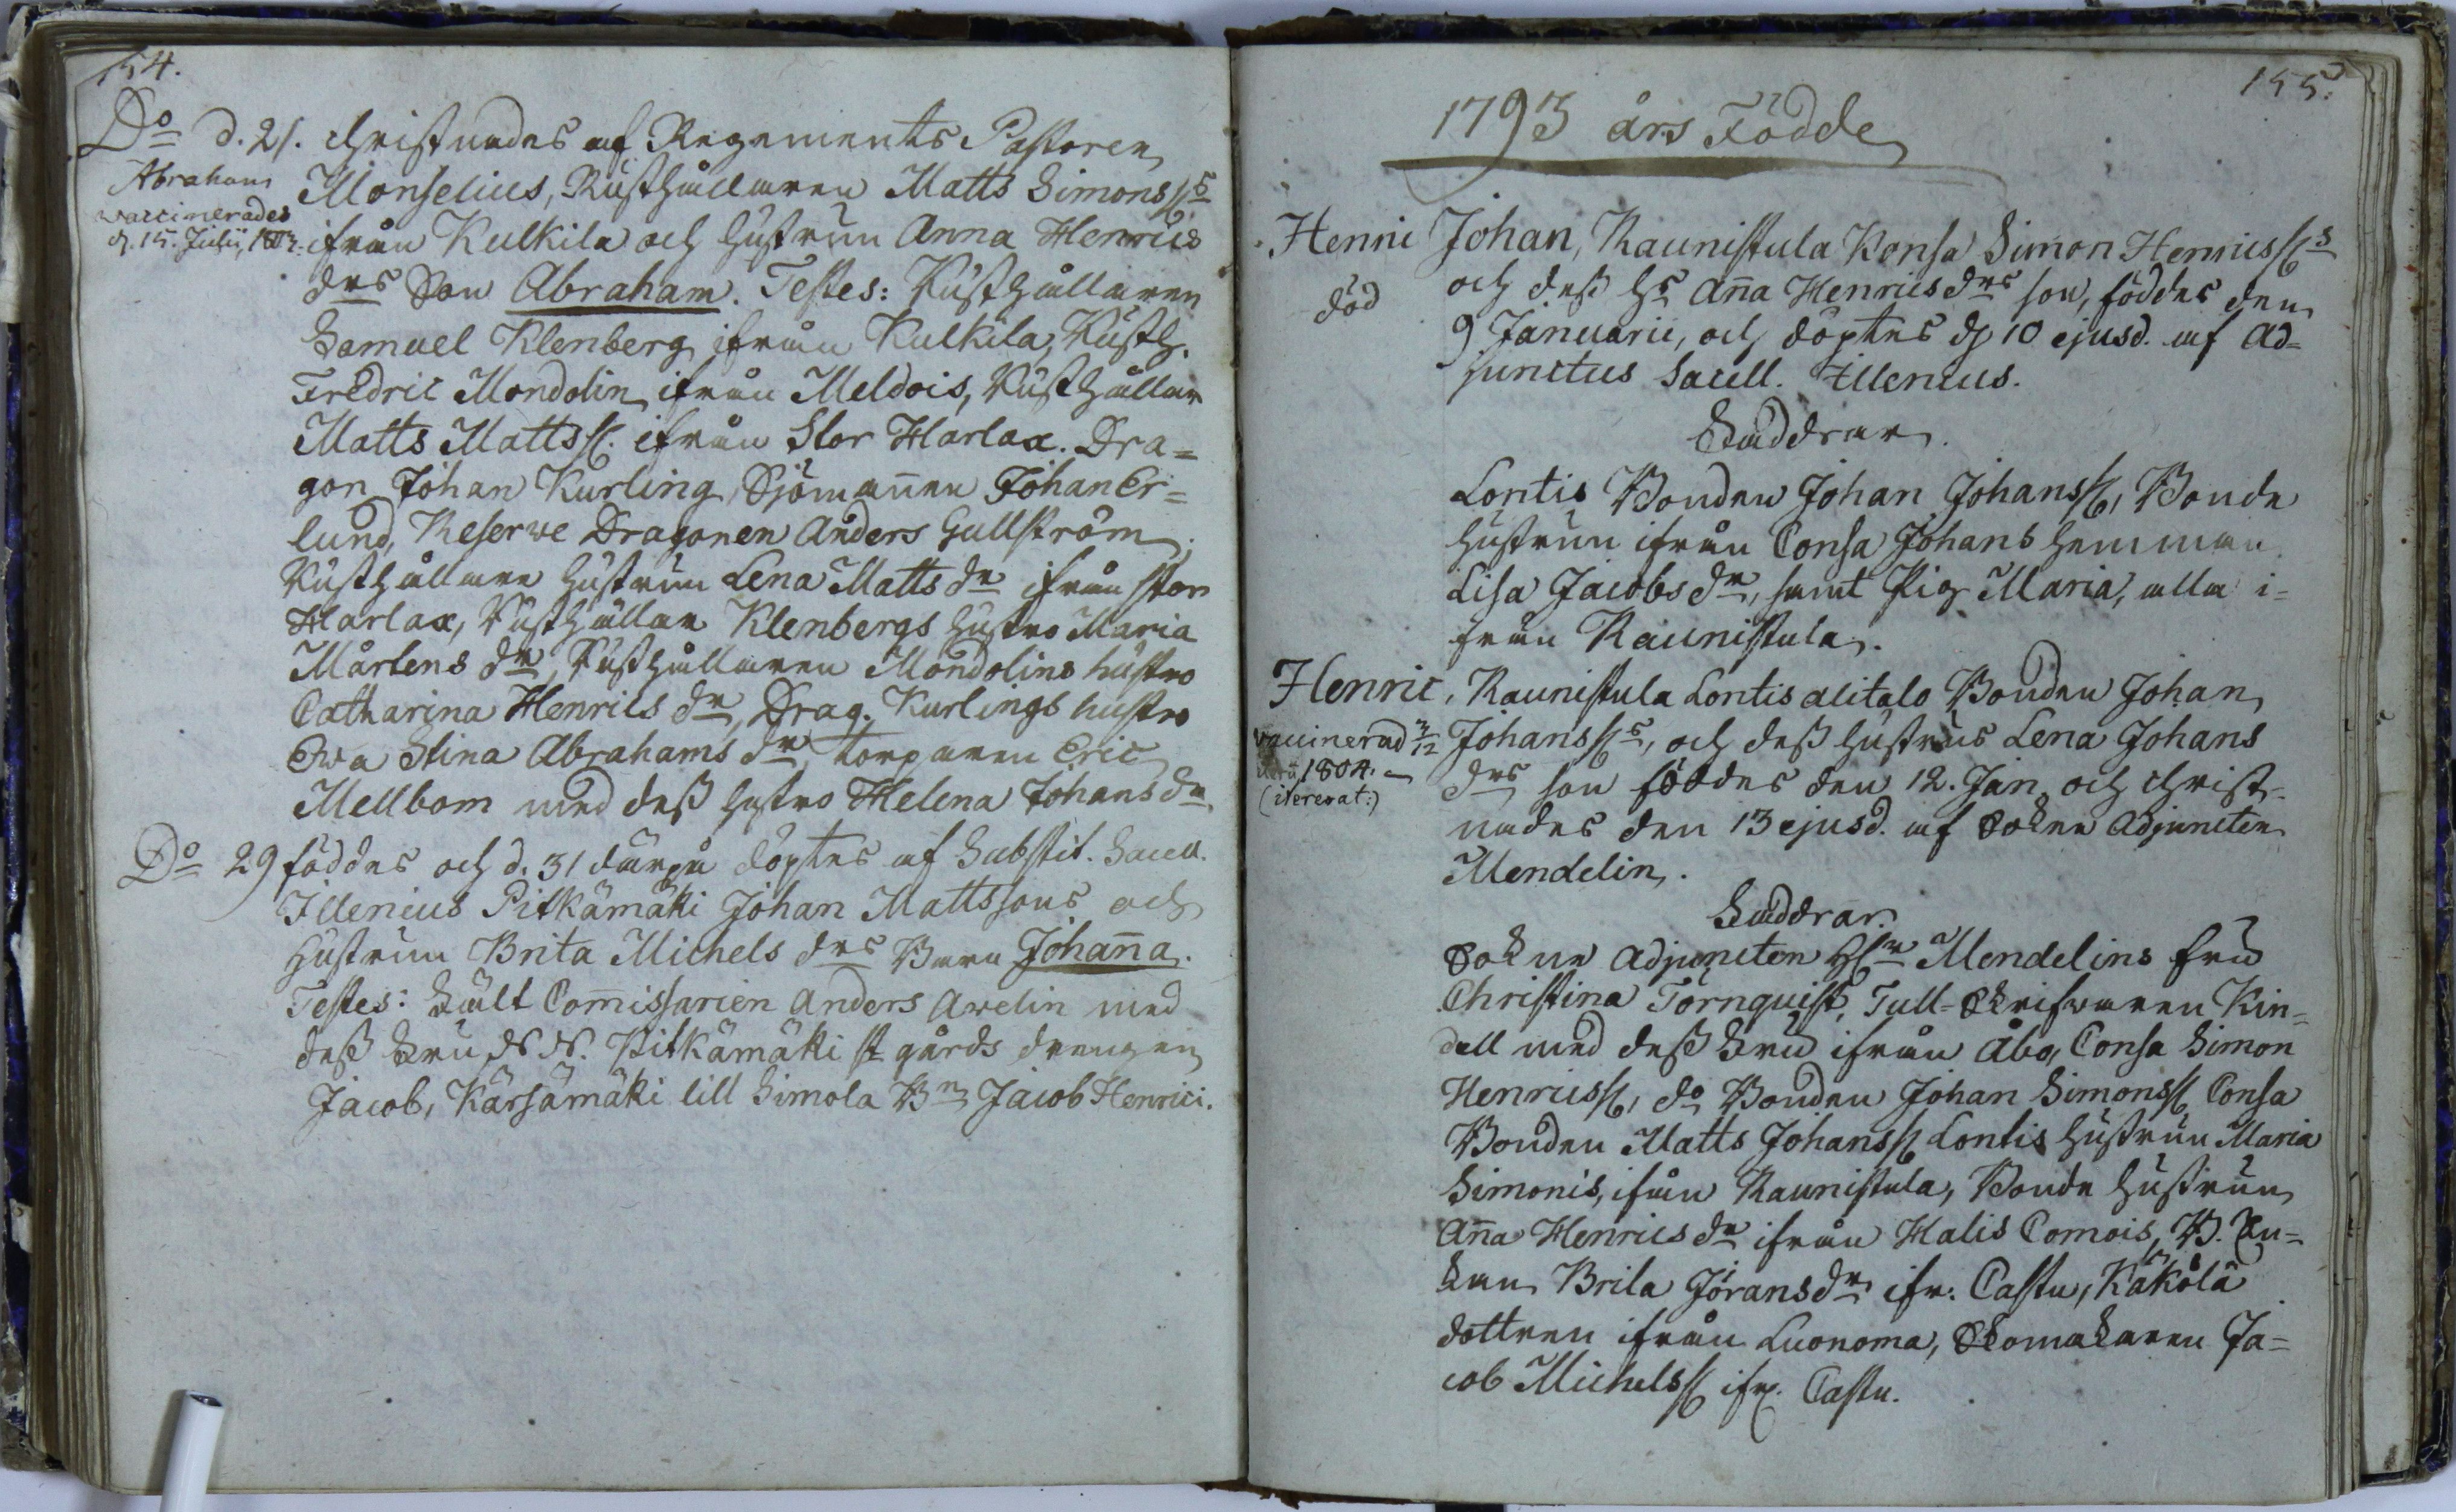 154.
Do d. 21. Christnades af Regements Pastoren
Abraham
vaccinerades
d. 15. Julii,
Monselius, Rusthållaren Matts Simonss:s
ifrån Kulkila och hustrun Anna Henrics
drs Son Abraham. Testes: Rusthållaren
Samuel Klenberg ifrån Kulkila, Rusth.
Fredric Mondolin ifrån Meldois, Rusthållar
Matts Mattss. ifrån Stor Harlax. Dra=
gon Johan Kurling, Sjömannen Johan Er=
lund, Reserve Dragonen Anders Gullström,
Rusthållare hustrun Lena Matts dr ifrån stor
Harlax, Rusthållar Klenbergs hustro Maria
Mårtens dr, Rusthållaren Mondolins hustro
Catharina Henrics dr, Drag. Kurlings hustro
Ewa Stina Abrahams dr, torparen Eric
Mellbom med dess hustro Helena Johans dr.
Do 29 föddes och d. 31 därpå döptes af Substit. Sacell.
Illenius Pitkämäki Johan Mattssons och
hustrun Brita Michels drs Barn Johanna.
Testes: Fält Commissarien Anders Avelin med
dess Fru N. N. Pitkämäki st gårds drengen
Jacob, Kärsämäki lill Simola Bn Jacob Henrici.
155.
1793 års Födde
Henric Johan, Raunistula Konsa Simon Henricss:s
död
och dess h:s Anna Henrics drs son, föddes den
9 Januarii, och döptes d. 10 ejusd. af Ad=
junctus Sacell. Illenius.
Faddrar.
Lontis Bonden Johan Johanss., Bonde
hustrun ifrån Consa Johans hemman
Lisa Jacobs dr, samt Pig. Maria, alla i=
från Raunistula.
Henric, Raunistula Lontis alitalo Bonden Johan
vaccinerad
1804.
(itererat:)
Johanss:s, och dess hustrus Lena Johans
drs son föddes den 12. Jan. och Christ=
nades den 13 ejusd. af Sokne Adjuncten
Mendelin.
Faddrar.
Sokne Adjuncten H:r Mendelins fru
Christina Törnquist, Tull-Skrifvaren Kin=
dell med dess Fru ifrån Åbo, Consa Simon
Henricss., do Bonden Johan Simonss. Consa
Bonden Matts Johanss. Lontis hustrun Maria
Simonis, ifrån Raunistula, Bonde hustrun
Anna Henrics dr ifrån Halis Comois, B. En=
kan Brita Jörans dr ifr. Castu, Kåkölä
dottren ifrån Luonoma, Skomakaren Ja=
cob Michelss. ifr. Castu.